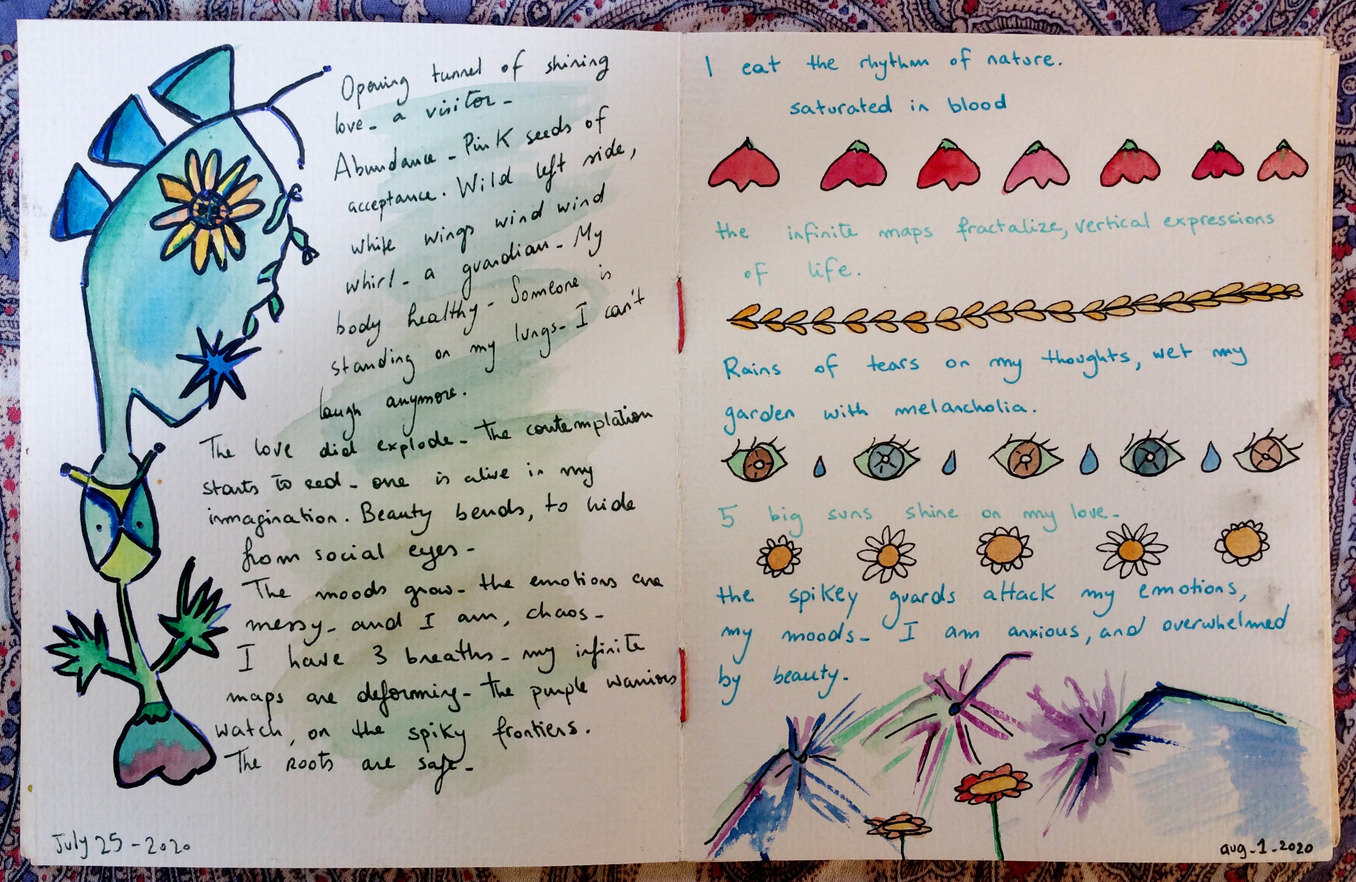 Opening tunnel of shining
love - a visitor -
Abundance - Pink seeds of
acceptance. Wild left side,
white wings wind wind
whirl - a guardian - My
body healthy - Someone is
standing on my lungs - I can't
laugh anymore.
The love did explode - the contemplation
starts to - one is alive in my
inmagination. Beauty bends, to hide
from social eyes -
The moods grow - the emotions are
messy - and I am, chaos -
I have 3 breaths - my infinite
maps are deforming - the purple warriors
watch, on the spiky frontiers.
The roots are safe -
July 25 - 2020
I eat the rhythm of nature.
saturated in blood
the infinite maps fractalize, vertical expressions
of life.
Rains of tears on my thoughts, wet my
garden with melancholia.
5 big suns shine on my love -
the spikey guards attack my emotions,
my moods - I am anxious, and overwhelmed
by beauty -
aug - 1 - 2020